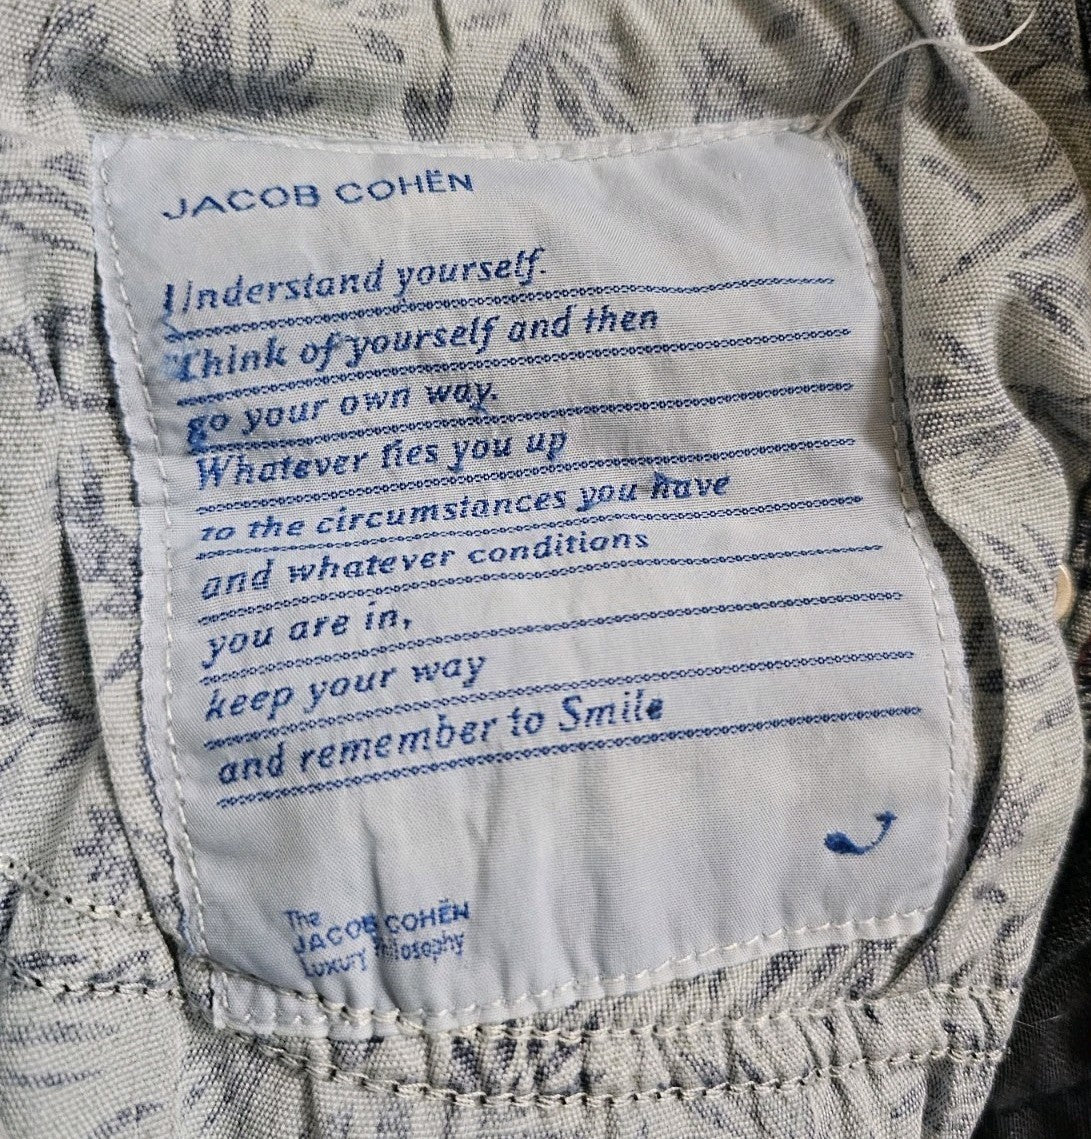 JACOB COHËN
Understand yourself.
Think of yourself and then
go your own way.
Whatever ties you up
to the circumstances you have
and whatever conditions
you are in,
keep your way
and remember to Smile
The
JACOB COHËN
Luxury Philosophy